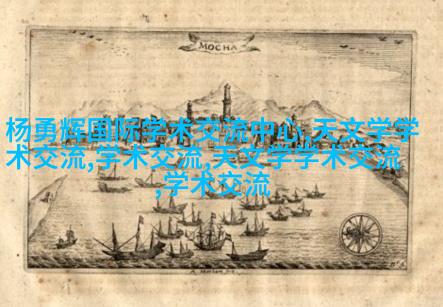 MOCHA
杨勇辉国际学术交流中心,天文学学
术交流,学术交流,天文学学术交流
,学术交流